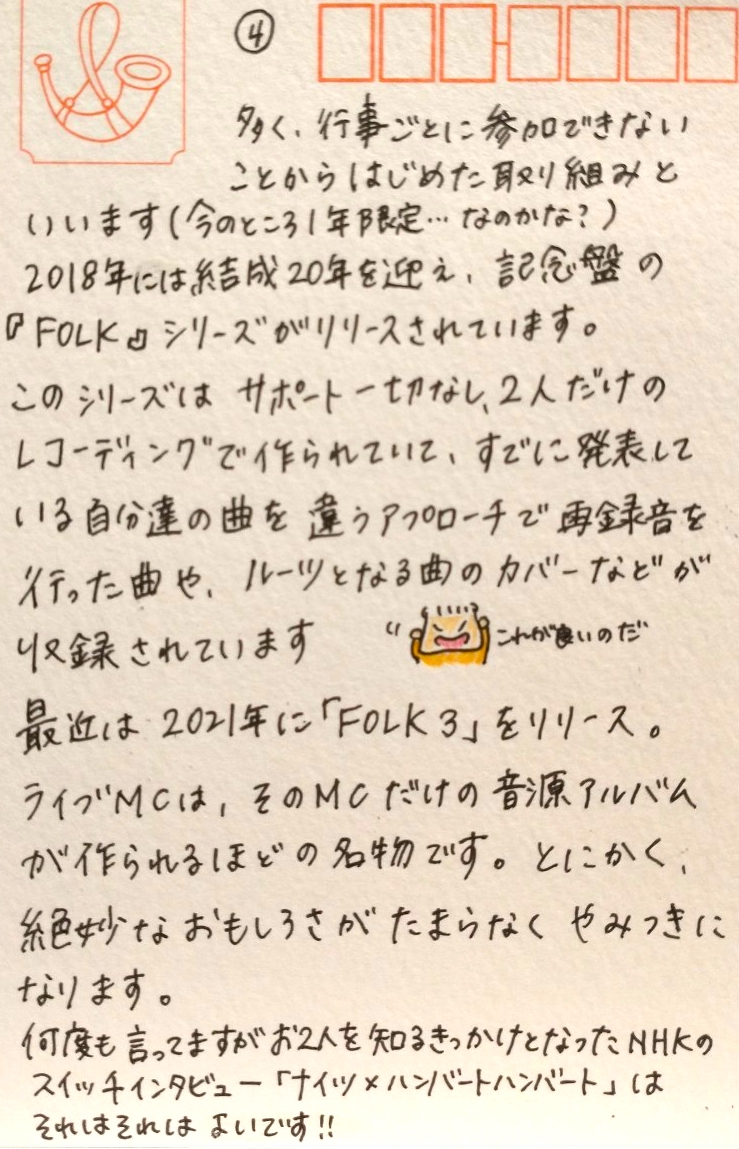 ④
多く、行事ごとに参加できない
ことからはじめた取り組みと
いいます(今のところ1年限定…なのかな?)
2018年には結成20年を迎え、記念盤の
『FOLK』シリーズがリリースされています。
このシリーズは サポート一切なし、2人だけの
レコーディングで作られていて、すでに発表して
いる自分達の曲を違うアプローチで再録音を
行った曲や、ルーツとなる曲のカバーなどが
収録されています
これが良いのだ
最近は2021年に「FOLK3」をリリース。
ライブMCは、そのMCだけの音源アルバム
が作られるほどの名物です。とにかく、
絶妙なおもしろさがたまらなくやみつきに
なります。
何度も言ってますがお2人を知るきっかけとなったNHKの
スイッチインタビュー「ナイツ×ハンバートハンバート」は
それはそれはよいです!!